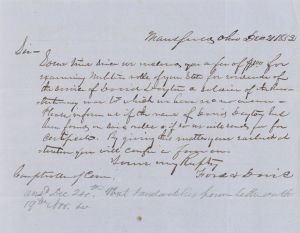 Mansfield, Ohio Dec 21 1852
Sir—
Some time since we enclosed you a fee of for
examining Militia rolls of your State for evidence of
the service of David Dayton a soldier of the Revo-
lutionary war to which we have no answer
Please inform us if the name of David Dayton has
been found on any rolls & if so as
Certificate. By giving this matter your earliest at-
tention you will confer a favor on
Yours very Respty
Comptroller of Conn. Ford & Davis
ansd Dec 24th that
19th Nov.